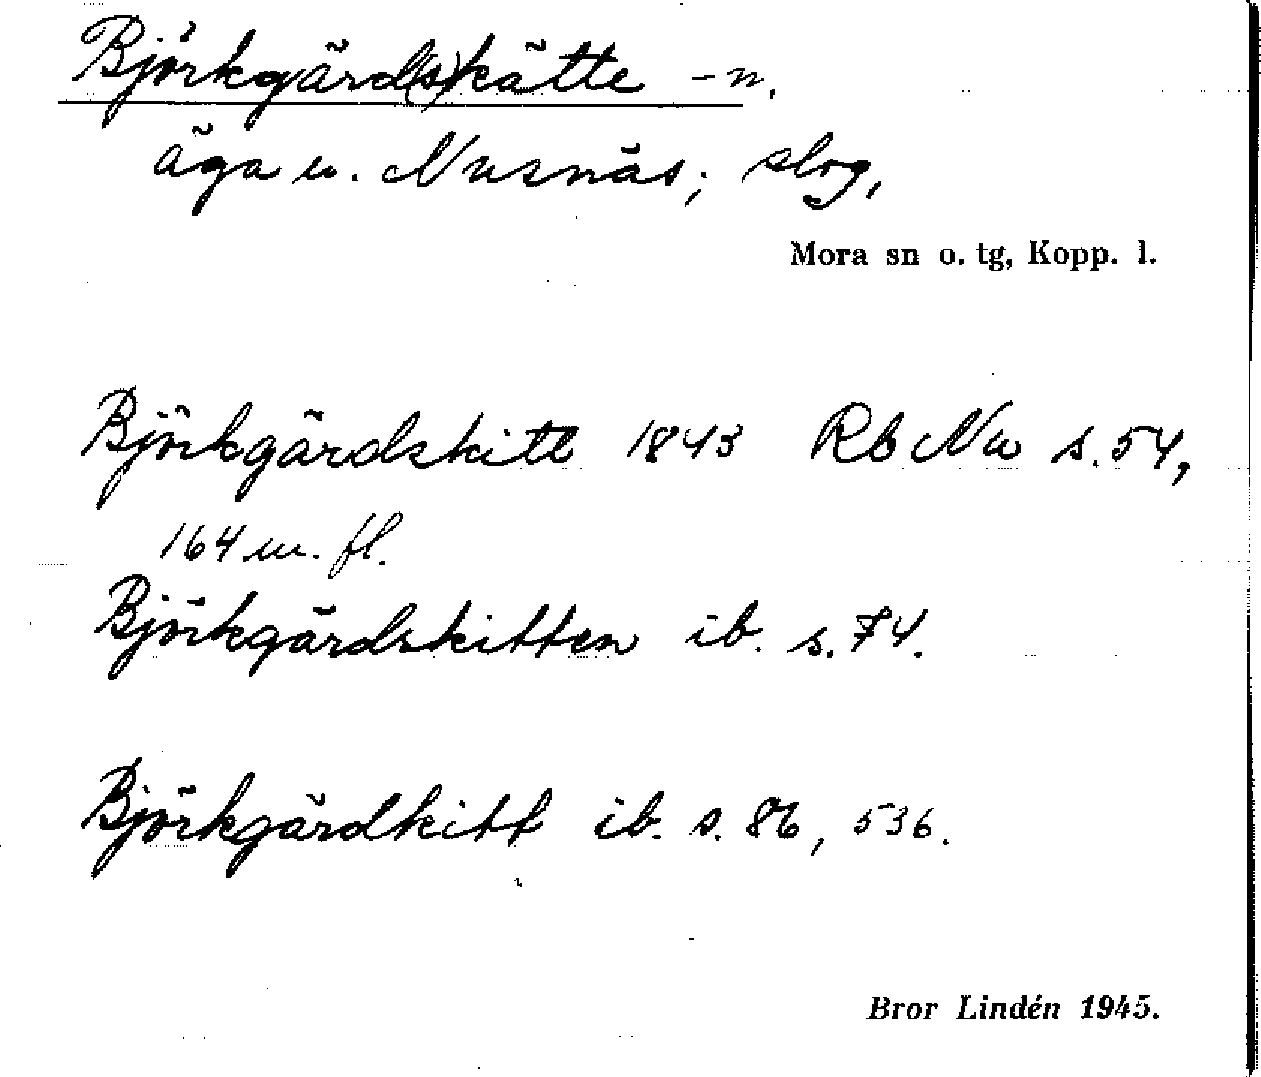 Björkgärd(s)kätte -n.
äga u. Nusnäs; slog,
Mora sn o. tg, Kopp. l.
Björkgärdskitt 1843 Rb Nu s. 54,
164 m. fl.
Björkgärdskitten ib. s. 74.
Björkgärdkitt ib. s. 86, 536.
Bror Lindén 1945.